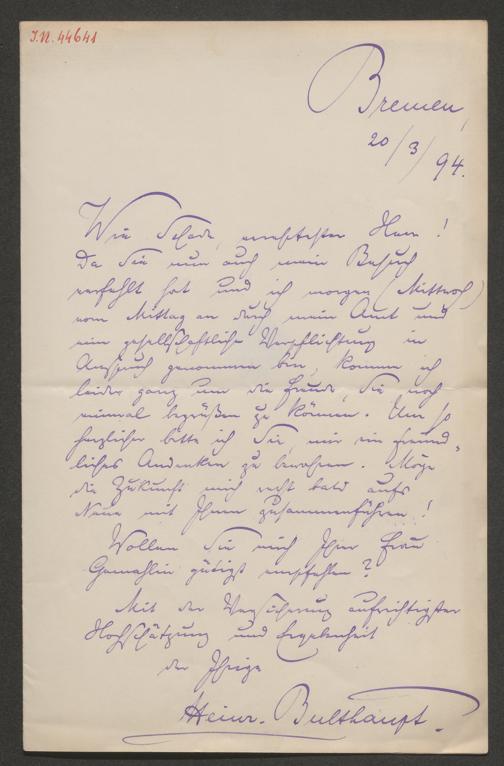 I.N. 44641
Bremen,
20/3/94.
Wie Schade, verehrtester Herr!
Da Sie nun auch mein Besuch
verfehlt hat und ich morgen (Mittwoch)
vom Mittag an durch mein Amt und
eine gesellschaftliche Verpflichtung in
Anspruch genommen bin, komme ich
leider ganz um die Freude, Sie noch
einmal begrüßen zu können. Um so
herzlicher bitte ich Sie, mir ein freund-
liches Andenken zu bewahren. Möge
die Zukunft mich recht bald aufs
Neue mit Ihnen zusammenführen!
Wollen Sie mich Ihrer Frau
Gemahlin gütigst empfehlen?
Mit der Versicherung aufrichtigster
Hochschätzung und Ergebenheit
der Ihrige
Heinr. Bulthaupt.